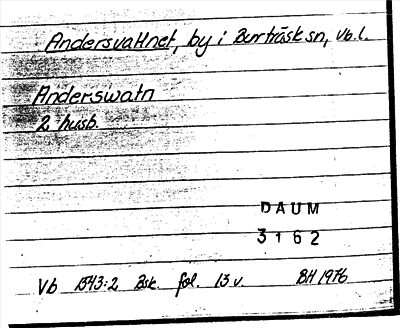 Andersvattnet, by i Burträsk sn, Vb.l.
Anderswatn
2 husb.
DAUM
3162
Vb 1543:2 Bsk. fol. 13 v. BH 1976